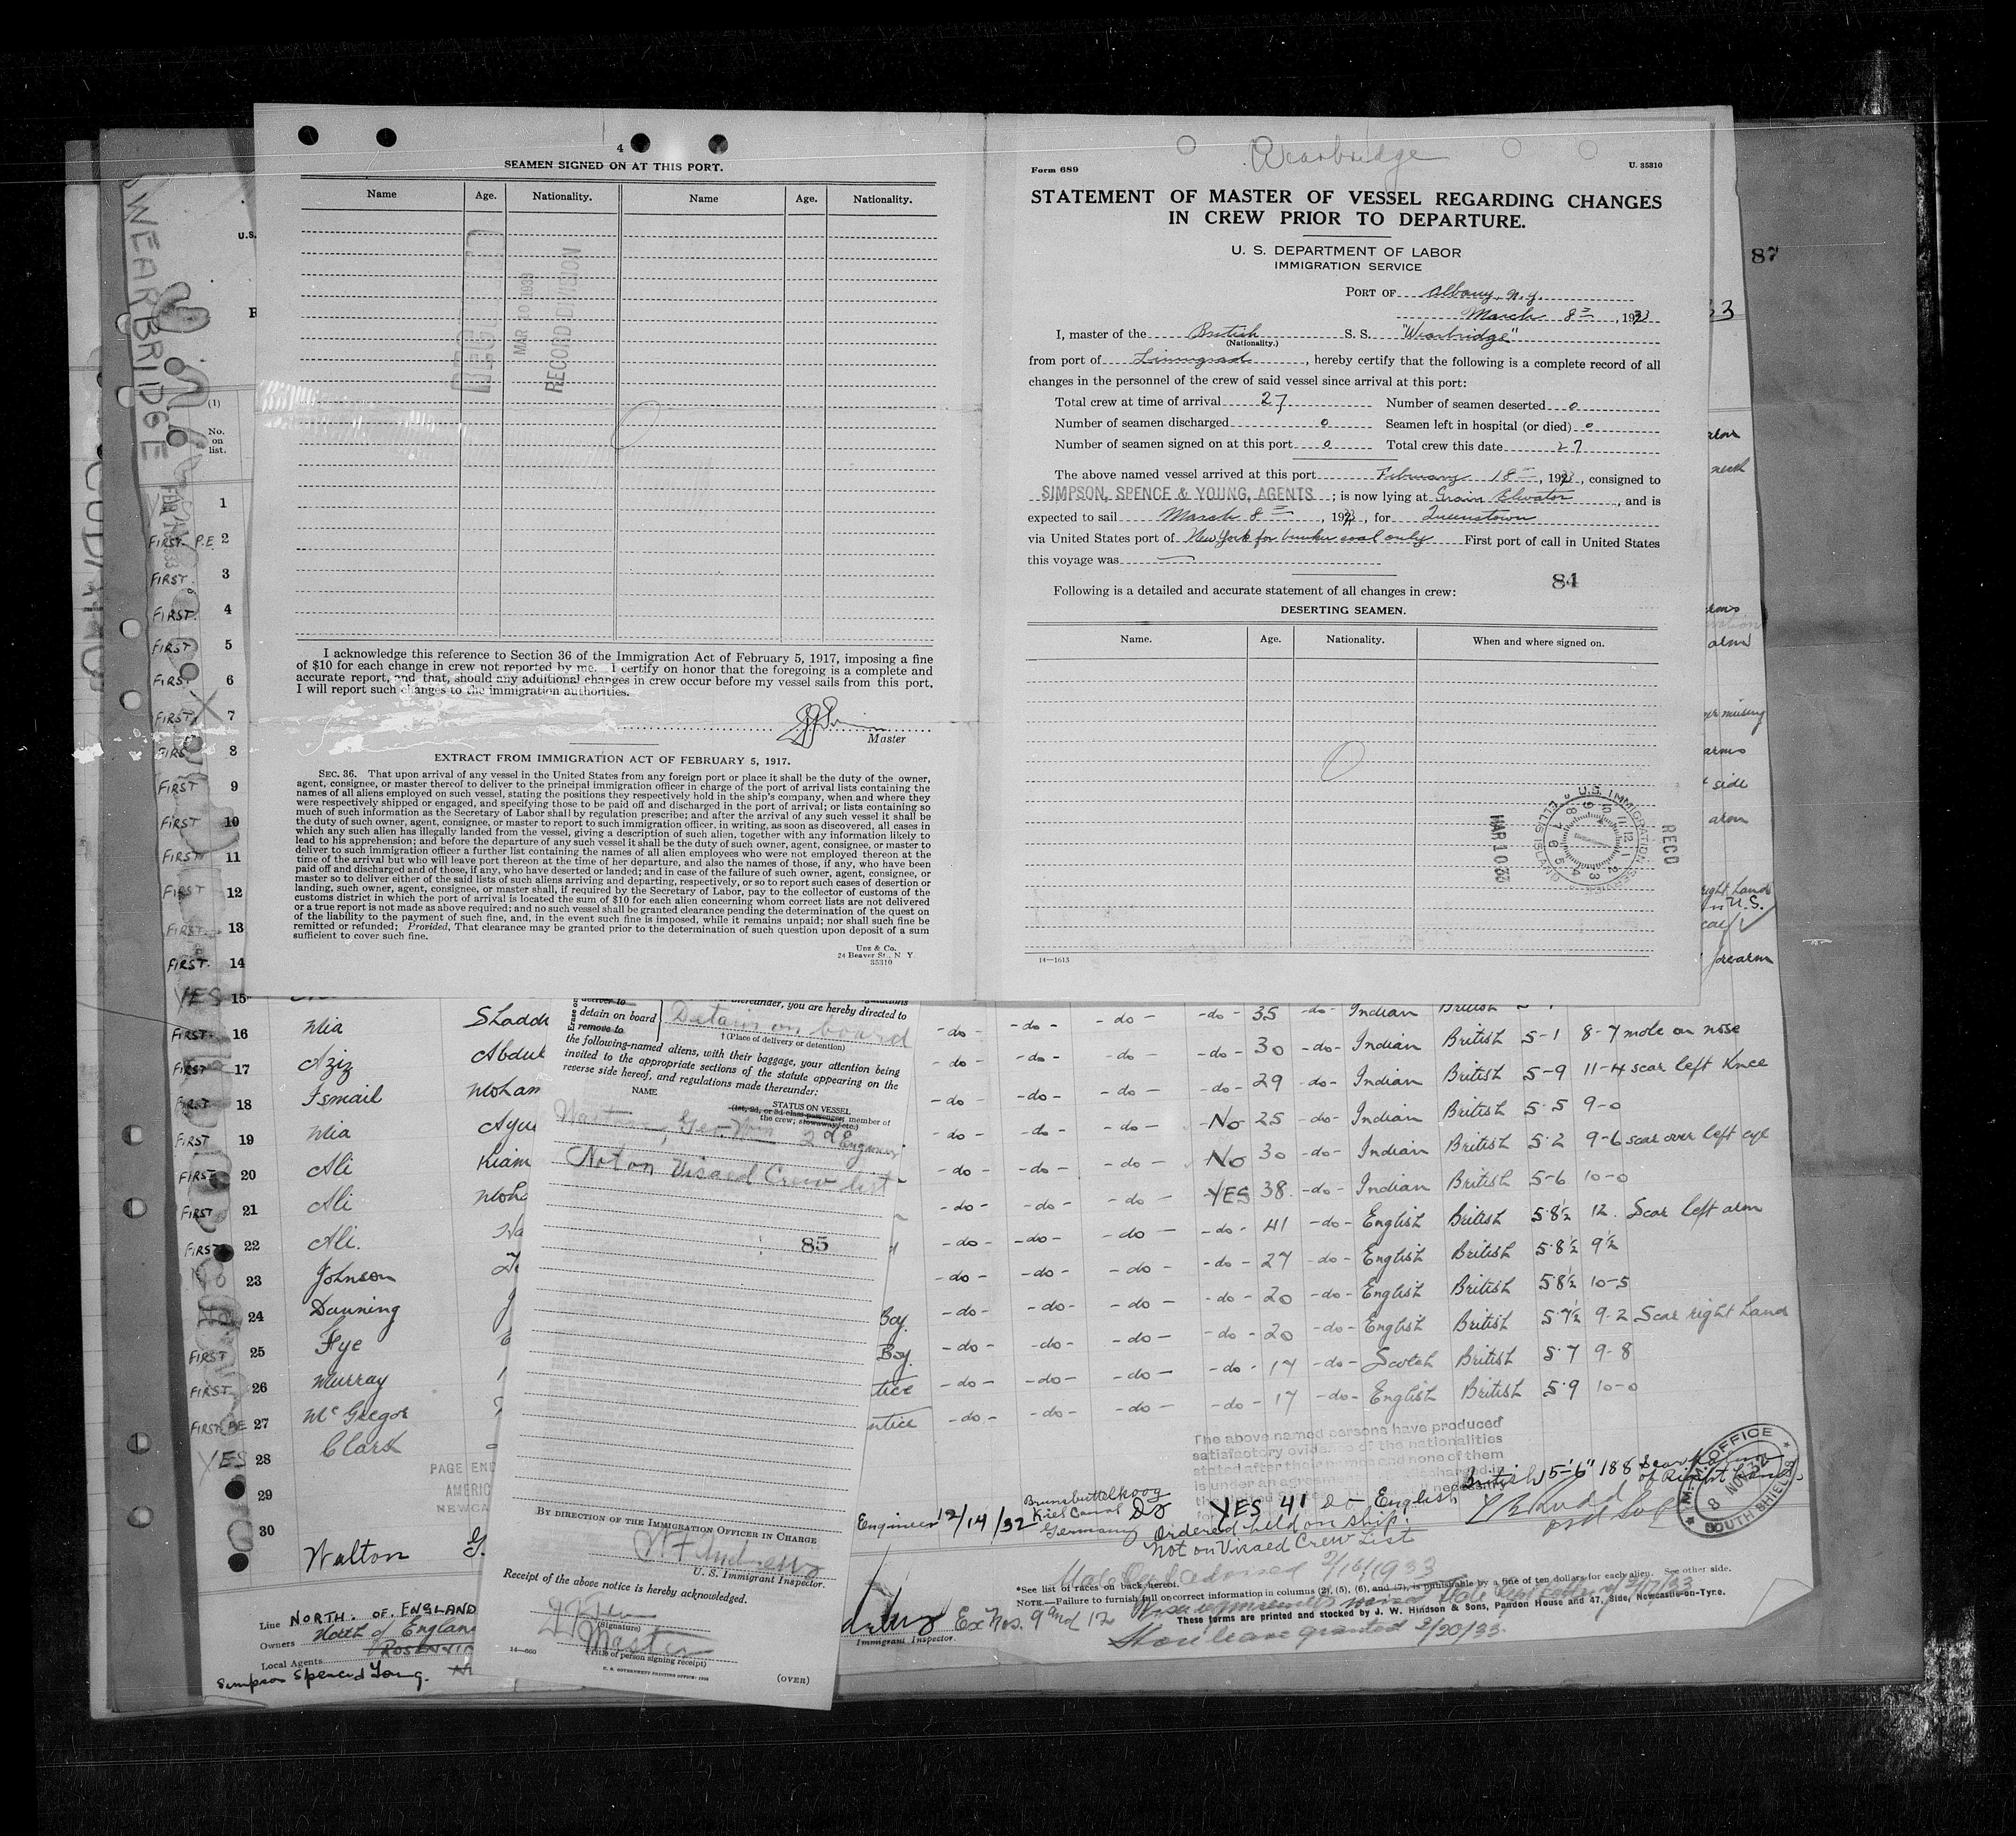 4
SEAMEN SIGNED ON AT THIS PORT.
Name Age. Nationality. Name Age. Nationality.
RECORD DIVISION
MAR 10 1933
I acknowledge this reference to Section 36 of the Immigration Act of February 5, 1917, imposing a fine
of $10 for each change in crew not reported by me. I certify on honor that the foregoing is a complete and
accurate report, and that, should any additional changes in crew occur before my vessel sails from this port,
I will report such changes to the immigration authorities.
Master
EXTRACT FROM IMMIGRATION ACT OF FEBRUARY 5, 1917.
SEC. 36. That upon arrival of any vessel in the United States from any foreign port or place it shall be the duty of the owner,
agent, consignee, or master thereof to deliver to the principal immigration officer in charge of the port of arrival lists containing the
names of all aliens employed on such vessel, stating the positions they respectively hold in the ship's company, when and where they
were respectively shipped or engaged, and specifying those to be paid off and discharged in the port of arrival; or lists containing so
much of such information as the Secretary of Labor shall by regulation prescribe; and after the arrival of any such vessel it shall be
the duty of such owner, agent, consignee, or master to report to such immigration officer, in writing, as soon as discovered, all cases in
which any such alien has illegally landed from the vessel, giving a description of such alien, together with any information likely to
lead to his apprehension; and before the departure of any such vessel it shall be the duty of such owner, agent, consignee, or master to
deliver to such immigration officer a further list containing the names of all alien employees who were not employed thereon at the
time of the arrival but who will leave port thereon at the time of her departure, and also the names of those, if any, who have been
paid off and discharged and of those, if any, who have deserted or landed; and in case of the failure of such owner, agent, consignee, or
master so to deliver either of the said lists of such aliens arriving and departing, respectively, or so to report such cases of desertion or
landing, such owner, agent, consignee, or master shall, if required by the Secretary of Labor, pay to the collector of customs of the
customs district in which the port of arrival is located the sum of $10 for each alien concerning whom correct lists are not delivered
or a true report is not made as above required; and no such vessel shall be granted clearance pending the determination of the quest on
of the liability to the payment of such fine, and, in the event such fine is imposed, while it remains unpaid; nor shall such fine be
remitted or refunded; Provided, That clearance may be granted prior to the determination of such question upon deposit of a sum
sufficient to cover such fine.
Unz & Co.
24 Beaver St., N Y.
35310
Wearbridge
Form 689
U. 35310
STATEMENT OF MASTER OF VESSEL REGARDING CHANGES
IN CREW PRIOR TO DEPARTURE.
U. S. DEPARTMENT OF LABOR
IMMIGRATION SERVICE
PORT OF Albany, N.Y.
March 8th, 1933
I, master of the British S. S. "Wearbridge"
(Nationality.)
from port of Linningrad, hereby certify that the following is a complete record of all
changes in the personnel of the crew of said vessel since arrival at this port:
Total crew at time of arrival 27 Number of seamen deserted 0
Number of seamen discharged 0 Seamen left in hospital (or died) 0
Number of seamen signed on at this port 0 Total crew this date 27
The above named vessel arrived at this port February 18th, 1933, consigned to
SIMPSON, SPENCE & YOUNG, AGENTS; is now lying at Grain Elevator, and is
expected to sail March 8th, 1933, for Queenstown
via United States port of New York for bunker coal only First port of call in United States
this voyage was —
84
Following is a detailed and accurate statement of all changes in crew:
DESERTING SEAMEN.
Name. Age. Nationality. When and where signed on.
0
MAR 10 33
U.S. IMMIGRATION
ELLIS ISLAND
RECD
14—1613
87
WEARBRIDGE
(1)
No.
on
list.
1
FIRST. P.E 2
FIRST. 3
FIRST. 4
FIRST. 5
FIRST 6
FIRST 7
FIRS 8
FIRST 9
FIRST 10
FIRST 11
FIRST 12
FIRST. 13
FIRST. 14
YES 15
FIRST. 16 Mia Shadd -do- -do- -do- -do- 35 -do- Indian British
FIRST 17 Aziz Abdul -do- -do- -do- -do- 30 -do- Indian British 5-1 8-7 mole on nose
FIRST 18 Ismail Moham -do- -do- -do- -do- 29 -do- Indian British 5-9 11-4 scar left Knee
FIRST 19 Mia Ayu -do- -do- -do- No 25 -do- Indian British 5-5 9-0
FIRST 20 Ali Kiam -do- -do- -do- No 30 -do- Indian British 5-2 9-6 scar over left eye
FIRST 21 Ali Moha -do- -do- -do- YES 38 -do- Indian British 5-6 10-0
FIRST 22 Ali. -do- -do- -do- -do- 41 -do- English British 5-8½ 12. Scar left arm
No 23 Johnson -do- -do- -do- -do- 27 -do- English British 5-8½ 9½
24 Dunning Boy. -do- -do- -do- -do- 20 -do- English British 5-8½ 10-5
FIRST 25 Fye Boy -do- -do- -do- -do- 20 -do- English British 5-7½ 9-2 Scar right hand
FIRST 26 Murray tice -do- -do- -do- -do- 17 -do- Scotch British 5-7 9-8
FIRST PE 27 McGregor ntice -do- -do- -do- -do- 17 -do- English British 5-9 10-0
YES 28 Clark
29
30
PAGE END
AMERIC
NEWCA
Walton G. Engineer 12/14/32 Brunsbuttelkoog Kiel Canal Germany Do YES 41 Do English British 5-6" 188
The above named persons have produced
satisfactory evidence of the nationalities
stated after their names and none of them
Ordered held on ship.
Not on Visaed Crew List
M.M. OFFICE
8 NOV 32
SOUTH SHIELDS
*See list of races on back hereof.
NOTE.—Failure to furnish full or correct information in columns (2), (5), (6), and (7), is punishable by a fine of ten dollars for each alien. See other side.
These forms are printed and stocked by J. W. Hindson & Sons, Pandon House and 47, Side, Newcastle-on-Tyne.
Immigrant Inspector.
Ex Nos. 9 and 12
Shore leave granted 2/20/33.
Line NORTH. OF. ENGLAND
Owners North of England
Local Agents
Simpson Spence & Young.
detain on board
remove to
Detain on board
hereunder, you are hereby directed to
† (Place of delivery or detention)
the following-named aliens, with their baggage, your attention being
invited to the appropriate sections of the statute appearing on the
reverse side hereof, and regulations made thereunder:
NAME STATUS ON VESSEL
(1st, 2d, or 3d class passenger; member of
the crew; stowaway, etc.)
Walton, Geo. Wm 2d Engineer
Not on Visaed Crew list
85
BY DIRECTION OF THE IMMIGRATION OFFICER IN CHARGE
U. S. Immigrant Inspector.
Receipt of the above notice is hereby acknowledged.
(Signature)
Master
(Title of person signing receipt)
14—660
(OVER)